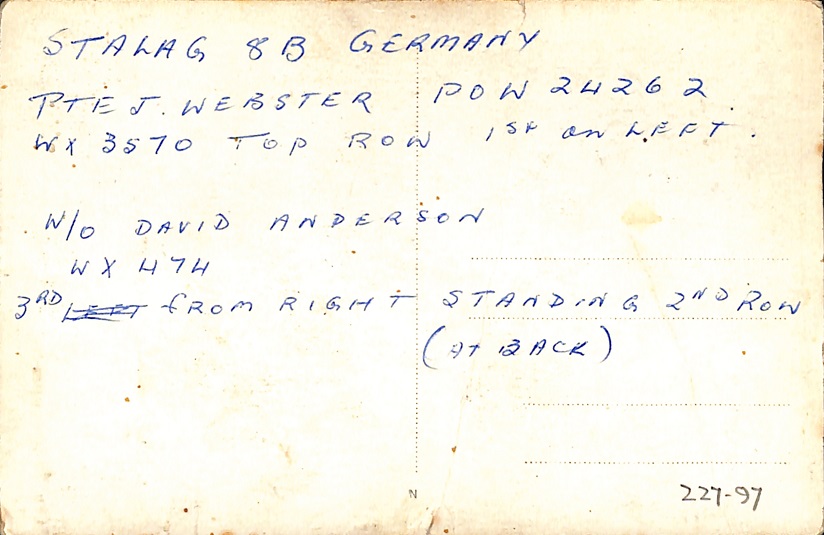 STALAG 8B GERMANY
PTE J. WEBSTER POW 24262
WX 3570 TOP ROW 1ST ON LEFT.
W/O DAVID ANDERSON
WX 474
3RD LEFT FROM RIGHT STANDING 2ND ROW
(AT BACK)
N
227-97